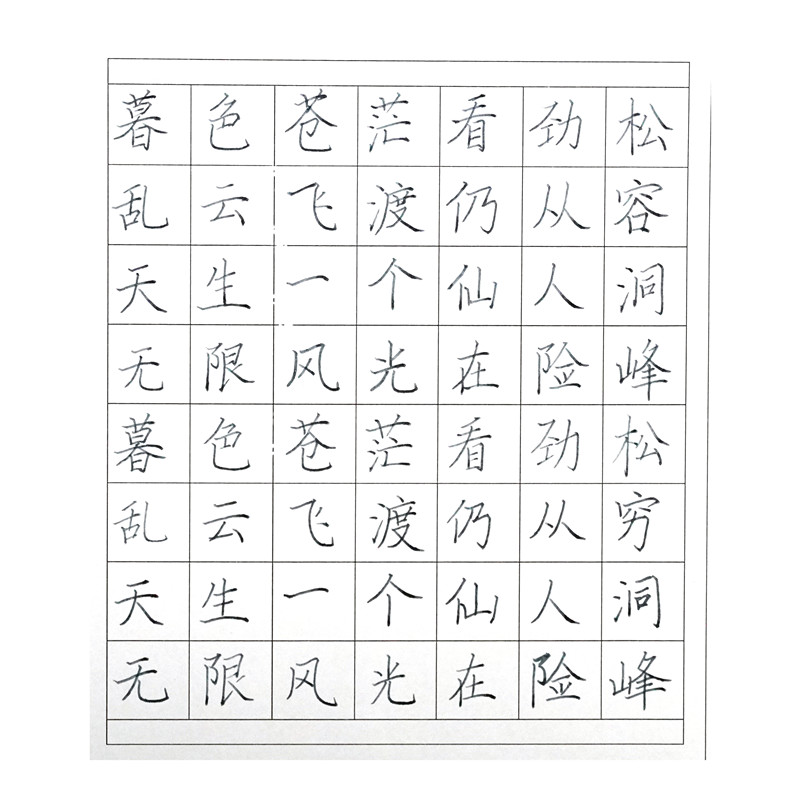 暮色苍茫看劲松
乱云飞渡仍从容
天生一个仙人洞
无限风光在险峰
暮色苍茫看劲松
乱云飞渡仍从穷
天生一个仙人洞
无限风光在险峰